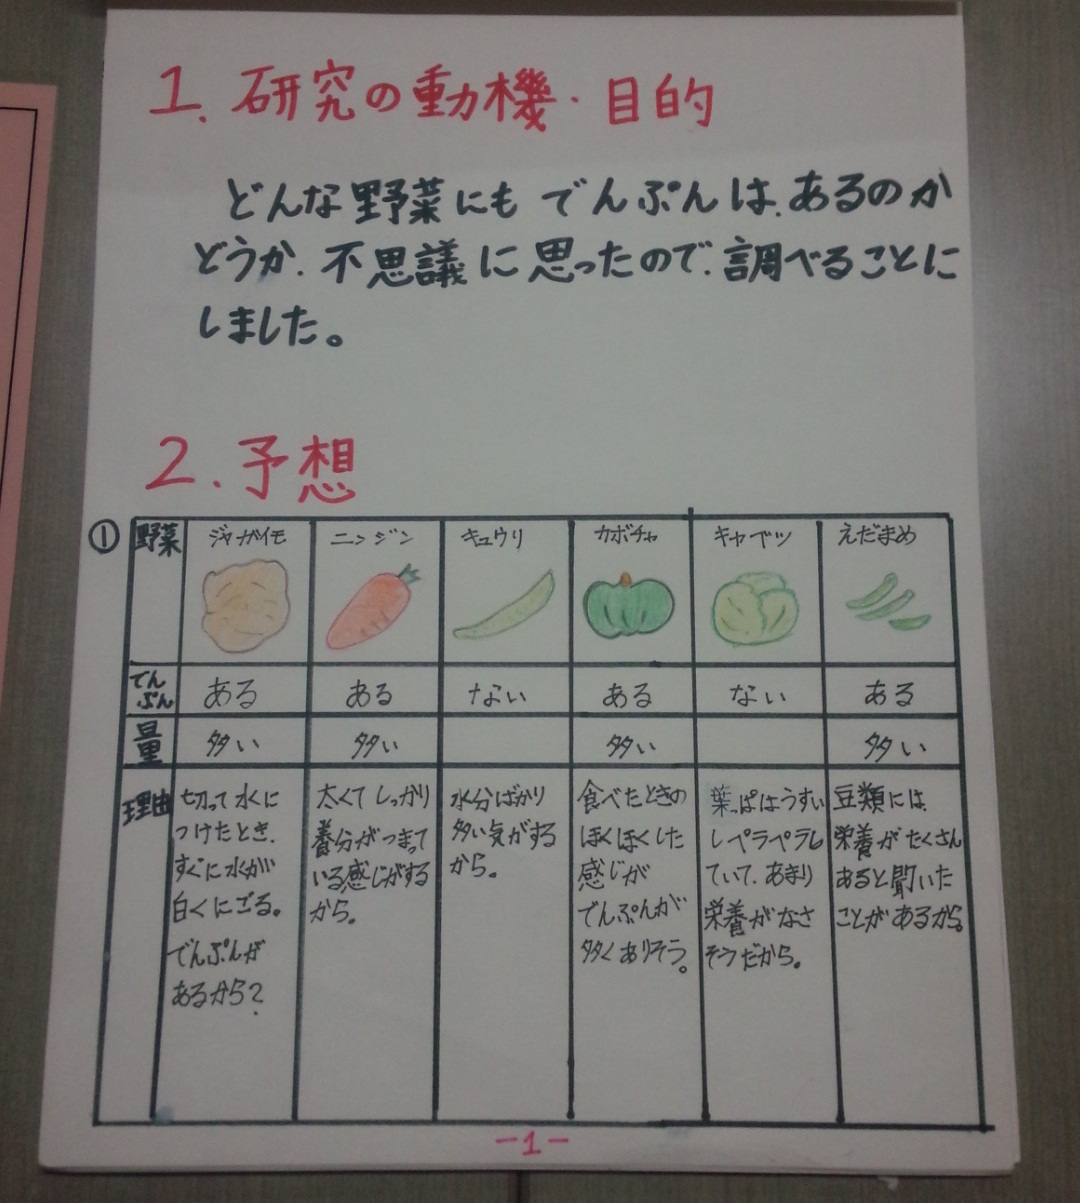 1.研究の動機・目的
どんな野菜にもでんぷんは、あるのか
どうか、不思議に思ったので、調べることに
しました。
2.予想
① 野菜 ジャガイモ ニンジン キュウリ カボチャ キャベツ えだまめ
でんぷん ある ある ない ある ない ある
量 多い 多い 多い 多い
理由
切って水に
つけたとき、
すぐに水が
白くにごる。
でんぷんが
あるから?
太くてしっかり
養分がつまって
いる感じがする
から。
水分ばかり
多い気がする
から。
食べたときの
ほくほくした
感じが
でんぷんが
多くありそう。
葉っぱはうすい
しペラペラし
ていて、あまり
栄養がなさ
そうだから。
豆類には、
栄養がたくさん
あると聞いた
ことがあるから。
-1-